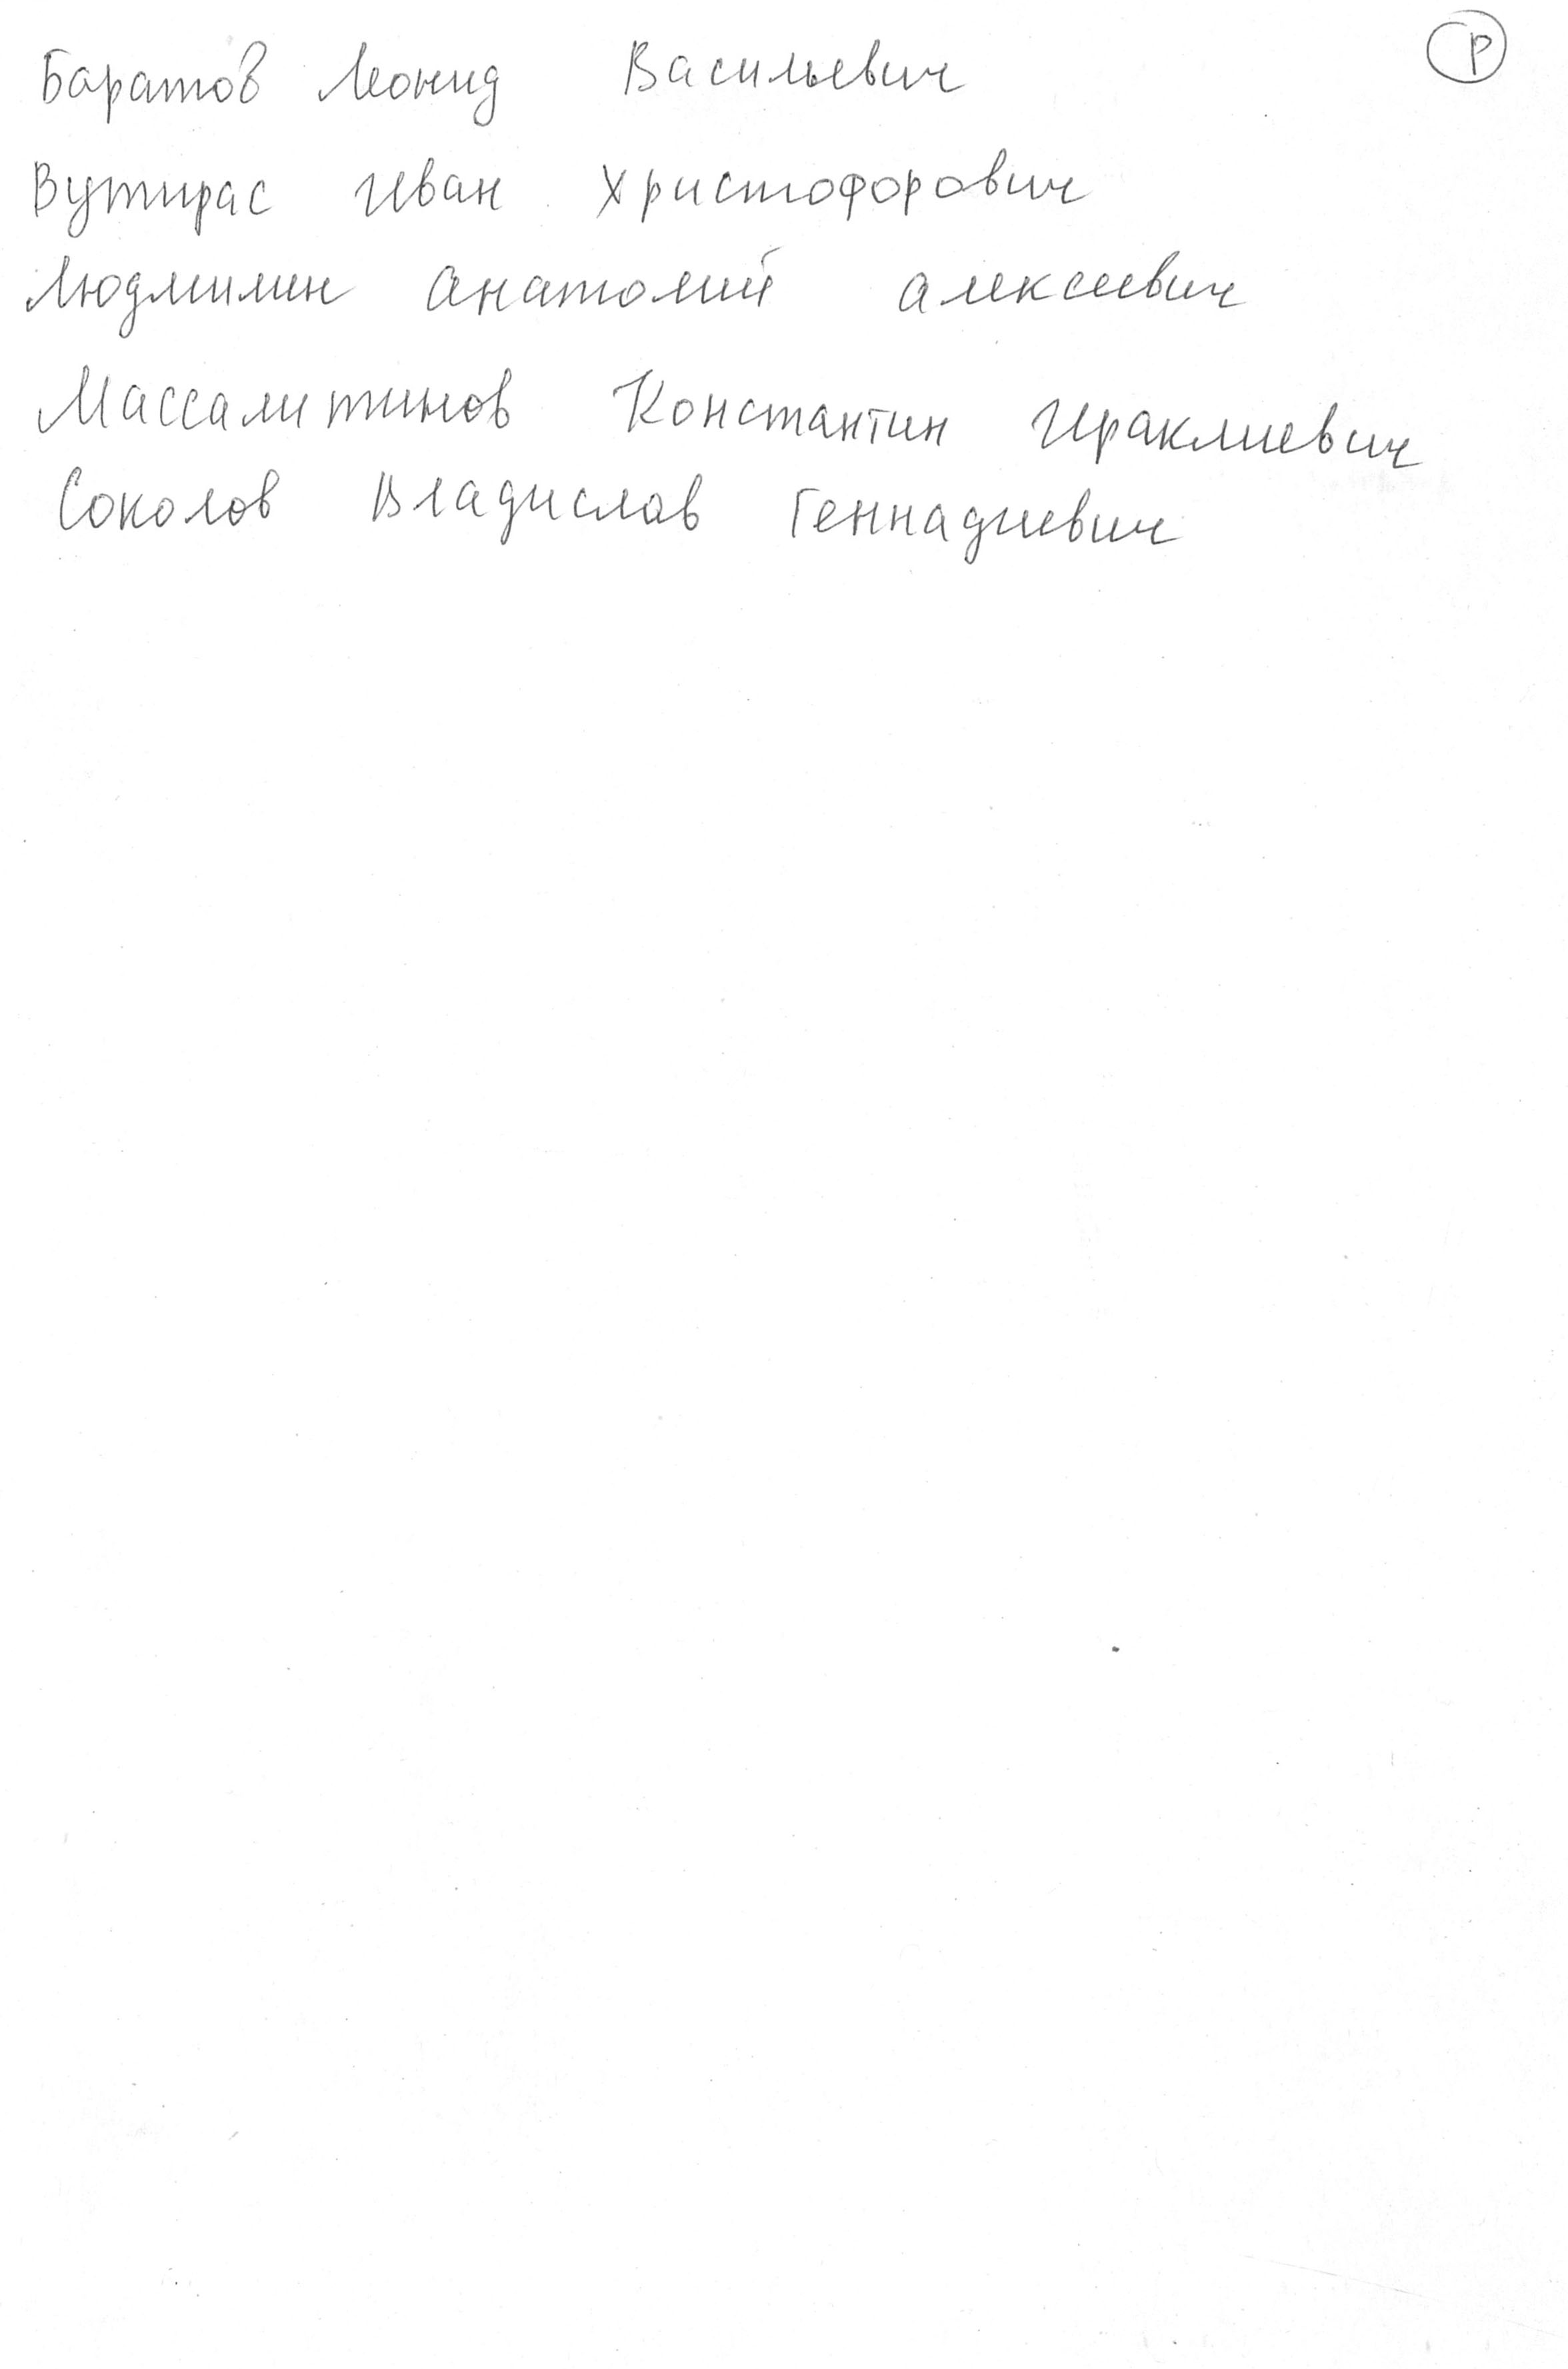 Баратов Леонид Васильевич Р
Вутирас Иван Христофорович
Людмилин Анатолий Алексеевич
Массалитинов Константин Ираклиевич
Соколов Владислав Геннадиевич